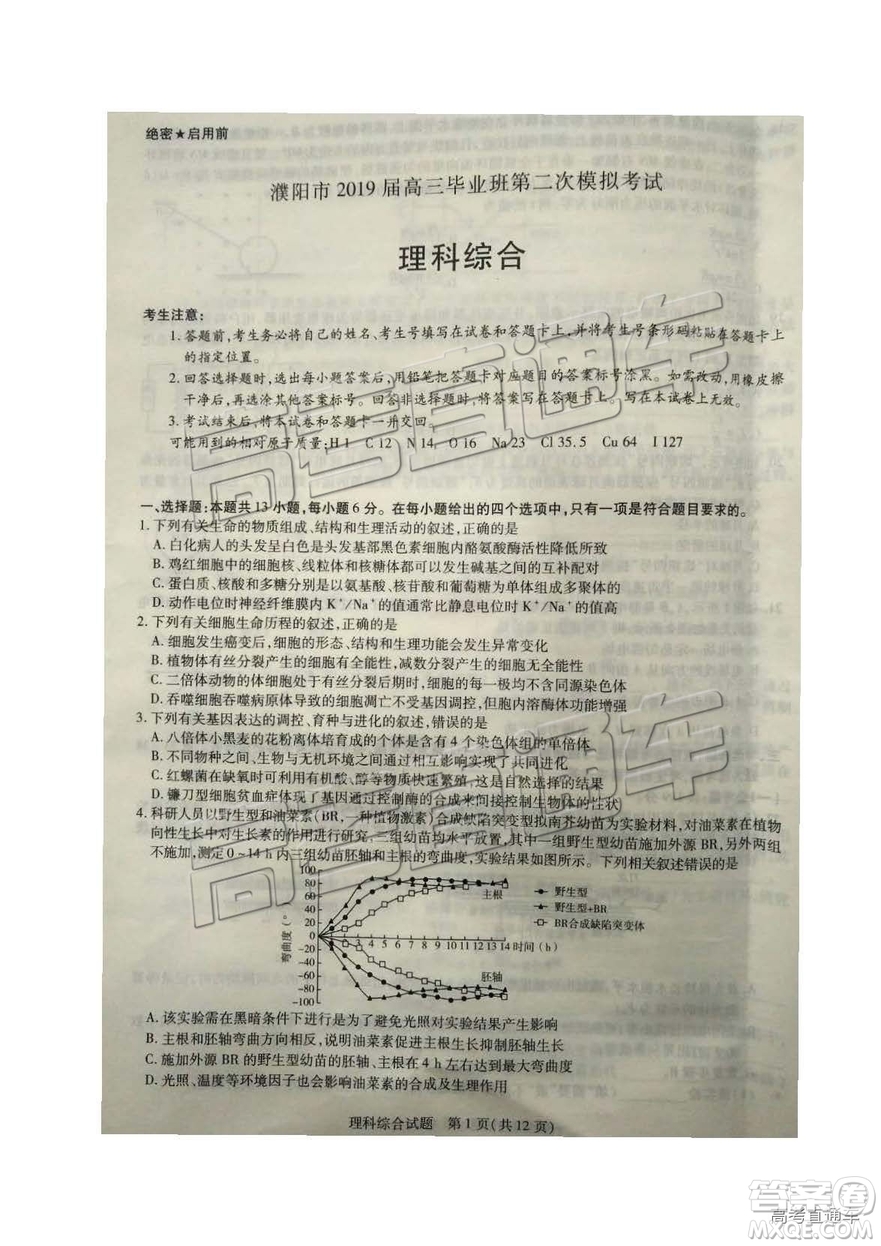 绝密★启用前
濮阳市 2019 届高三毕业班第二次模拟考试
理科综合
考生注意:
1. 答题前,考生务必将自己的姓名、考生号填写在试卷和答题卡上,并将考生号条形码粘贴在答题卡上
的指定位置。
2. 回答选择题时,选出每小题答案后,用铅笔把答题卡对应题目的答案标号涂黑。如需改动,用橡皮擦
干净后,再选涂其他答案标号。回答非选择题时,将答案写在答题卡上。写在本试卷上无效。
3. 考试结束后,将本试卷和答题卡一并交回。
可能用到的相对原子质量:H 1 C 12 N 14 O 16 Na 23 Cl 35.5 Cu 64 I 127
一、选择题:本题共 13 小题,每小题 6 分。在每小题给出的四个选项中,只有一项是符合题目要求的。
1. 下列有关生命的物质组成、结构和生理活动的叙述,正确的是
A. 白化病人的头发呈白色是头发基部黑色素细胞内酪氨酸酶活性降低所致
B. 鸡红细胞中的细胞核、线粒体和核糖体都可以发生碱基之间的互补配对
C. 蛋白质、核酸和多糖分别是以氨基酸、核苷酸和葡萄糖为单体组成多聚体的
D. 动作电位时神经纤维膜内 K⁺/Na⁺的值通常比静息电位时 K⁺/Na⁺的值高
2. 下列有关细胞生命历程的叙述,正确的是
A. 细胞发生癌变后,细胞的形态、结构和生理功能会发生异常变化
B. 植物体有丝分裂产生的细胞有全能性,减数分裂产生的细胞无全能性
C. 二倍体动物的体细胞处于有丝分裂后期时,细胞的每一极均不含同源染色体
D. 吞噬细胞吞噬病原体导致的细胞凋亡不受基因调控,但胞内溶酶体功能增强
3. 下列有关基因表达的调控、育种与进化的叙述,错误的是
A. 八倍体小黑麦的花粉离体培育成的个体是含有 4 个染色体组的单倍体
B. 不同物种之间、生物与无机环境之间通过相互影响实现了共同进化
C. 红螺菌在缺氧时可利用有机酸、醇等物质快速繁殖,这是自然选择的结果
D. 镰刀型细胞贫血症体现了基因通过控制酶的合成来间接控制生物体的性状
4. 科研人员以野生型和油菜素(BR,一种植物激素)合成缺陷突变型拟南芥幼苗为实验材料,对油菜素在植物
向性生长中对生长素的作用进行研究,三组幼苗均水平放置,其中一组野生型幼苗施加外源 BR,另外两组
不施加,测定 0~14 h 内三组幼苗胚轴和主根的弯曲度,实验结果如图所示。下列相关叙述错误的是
100
80
60
40
20
0
-20
-40
-60
-80
-100
弯曲度(°)
1 2 3 4 5 6 7 8 9 10 11 12 13 14 时间(h)
主根
胚轴
野生型
野生型+BR
BR合成缺陷突变体
A. 该实验需在黑暗条件下进行是为了避免光照对实验结果产生影响
B. 主根和胚轴弯曲方向相反,说明油菜素促进主根生长抑制胚轴生长
C. 施加外源 BR 的野生型幼苗的胚轴、主根在 4 h 左右达到最大弯曲度
D. 光照、温度等环境因子也会影响油菜素的合成及生理作用
理科综合试题 第 1 页(共 12 页)
高考直通车
高考直通车
答案圈
MXQE.COM
高考直通车